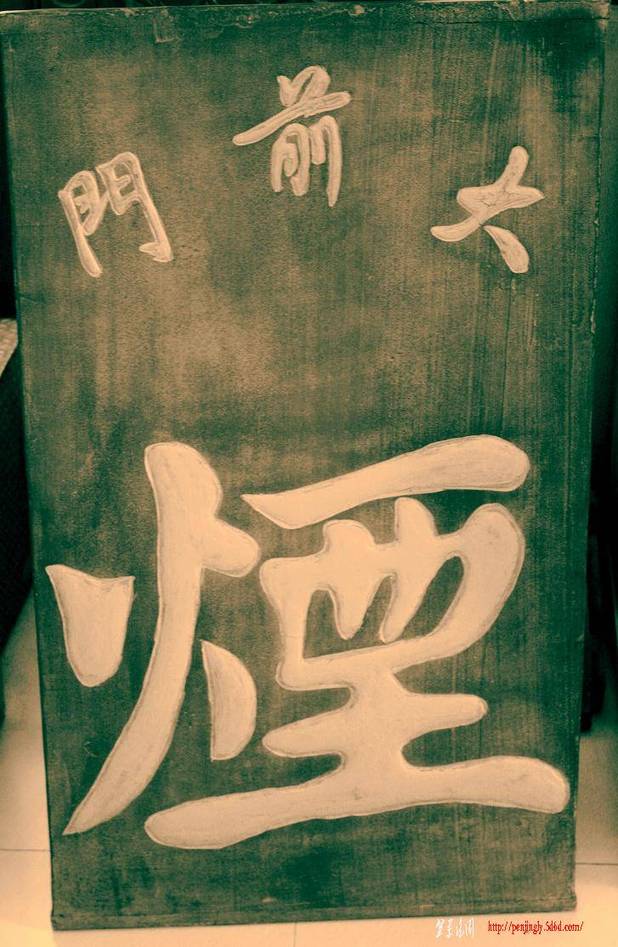 大前門
煙
http://penjingly.5d6d.com/